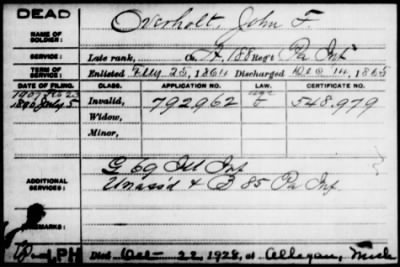 DEAD
NAME OF SOLDIER:
Overholt, John F.
SERVICE:
Late rank, Co. F, 188 Reg't Pa Inf
TERM OF SERVICE:
Enlisted Feby 25, 1864 Discharged Dec 14, 1865
DATE OF FILING. CLASS. APPLICATION NO. LAW. CERTIFICATE NO.
1907
1890 July 5 Invalid, 792962 548.979
Widow,
Minor,
ADDITIONAL SERVICES:
G 69 Ill Inf
Unass'd & B 85 Pa Inf
REMARKS:
LPH
Died Dec 22, 1928, at Allegan, Mich